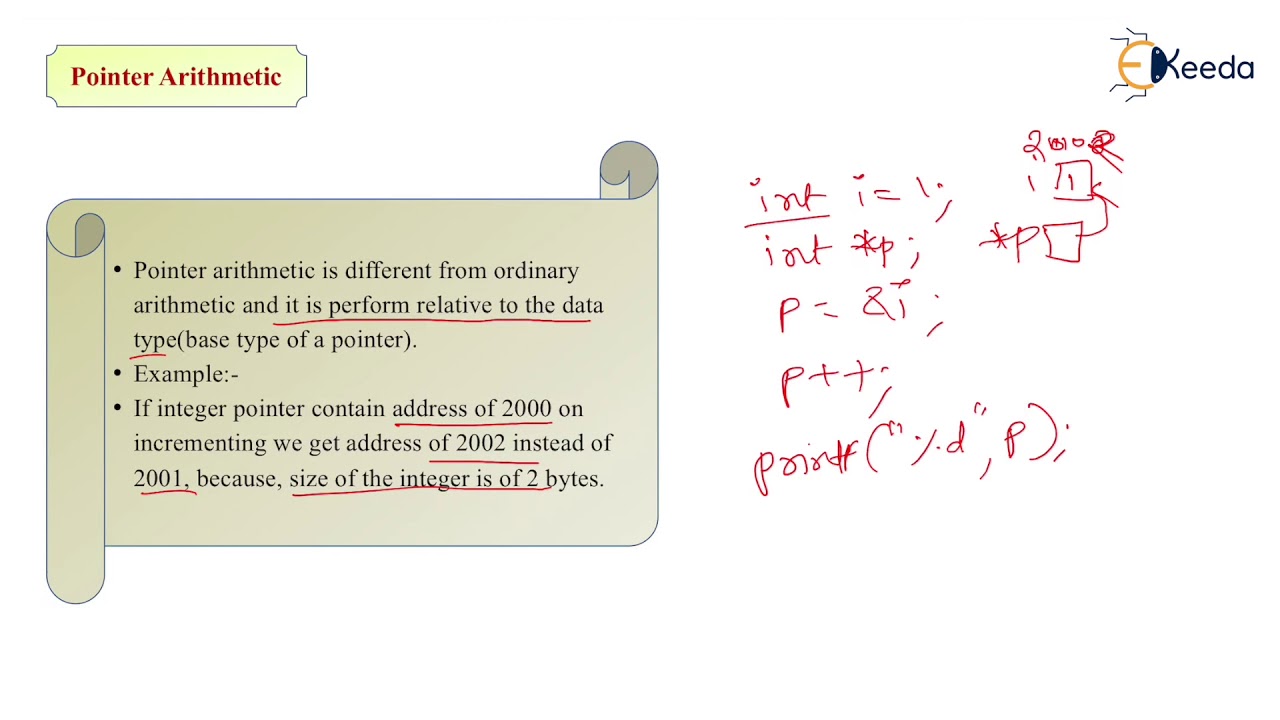 Pointer Arithmetic
EKeeda
• Pointer arithmetic is different from ordinary
arithmetic and it is perform relative to the data
type(base type of a pointer).
• Example:-
• If integer pointer contain address of 2000 on
incrementing we get address of 2002 instead of
2001, because, size of the integer is of 2 bytes.
int i = 1;
int *p;
p = &i;
p++;
printf("%d", p);
i 1
*p